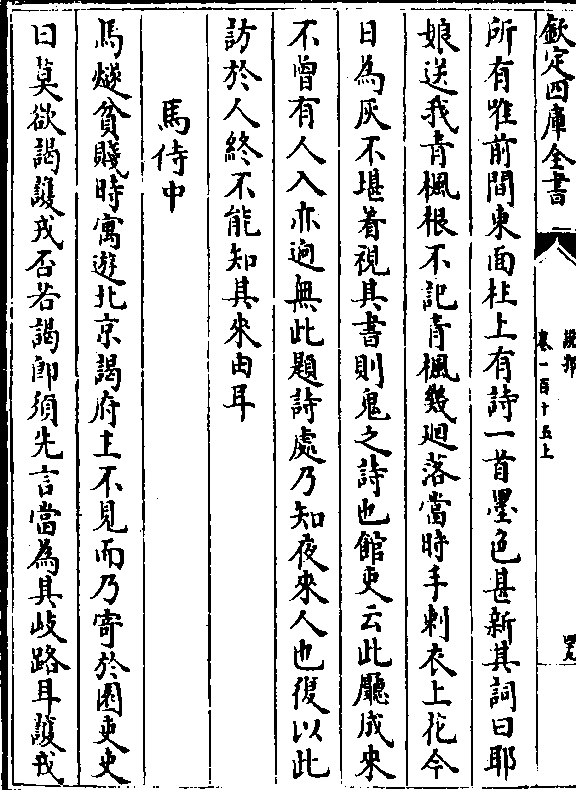 欽定四庫全書
說郛
卷一百十五上
所有唯前間東面柱上有詩一首墨色甚新其詞曰耶
娘送我青楓根不記青楓幾廻落當時手刺衣上花今
日為灰不堪着視其書則鬼之詩也館吏云此廳成來
不曾有人入亦逈無此題詩處乃知夜來人也復以此
訪於人終不能知其來由耳
馬侍中
馬燧貧賤時寓遊北京謁府主不見而乃寄於園吏吏
曰莫欲謁護戎否若謁即須先言當為具歧路耳護戎